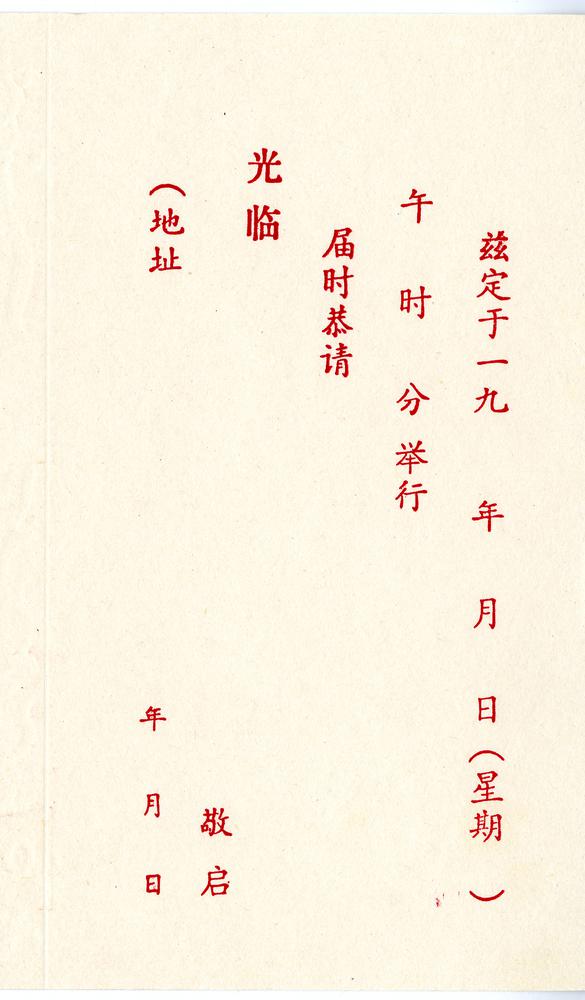 兹定于一九 年 月 日（星期 ）
午 时 分举行
届时恭请
光临
敬启
（地址
年 月 日